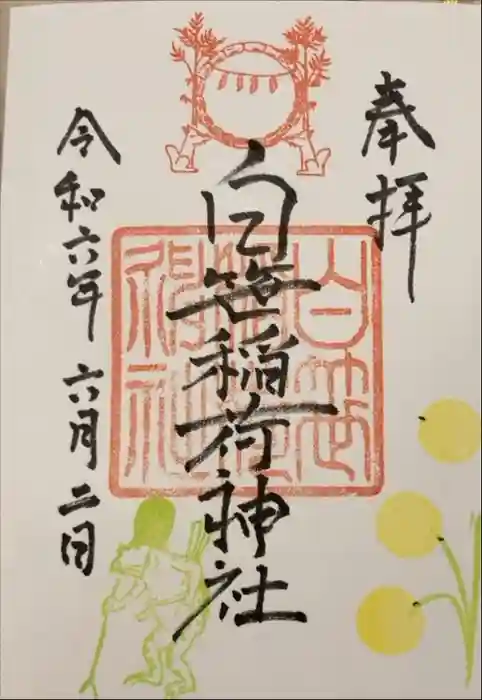 奉拝
白笹稲荷神社
令和六年六月二日
白笹稲荷神社